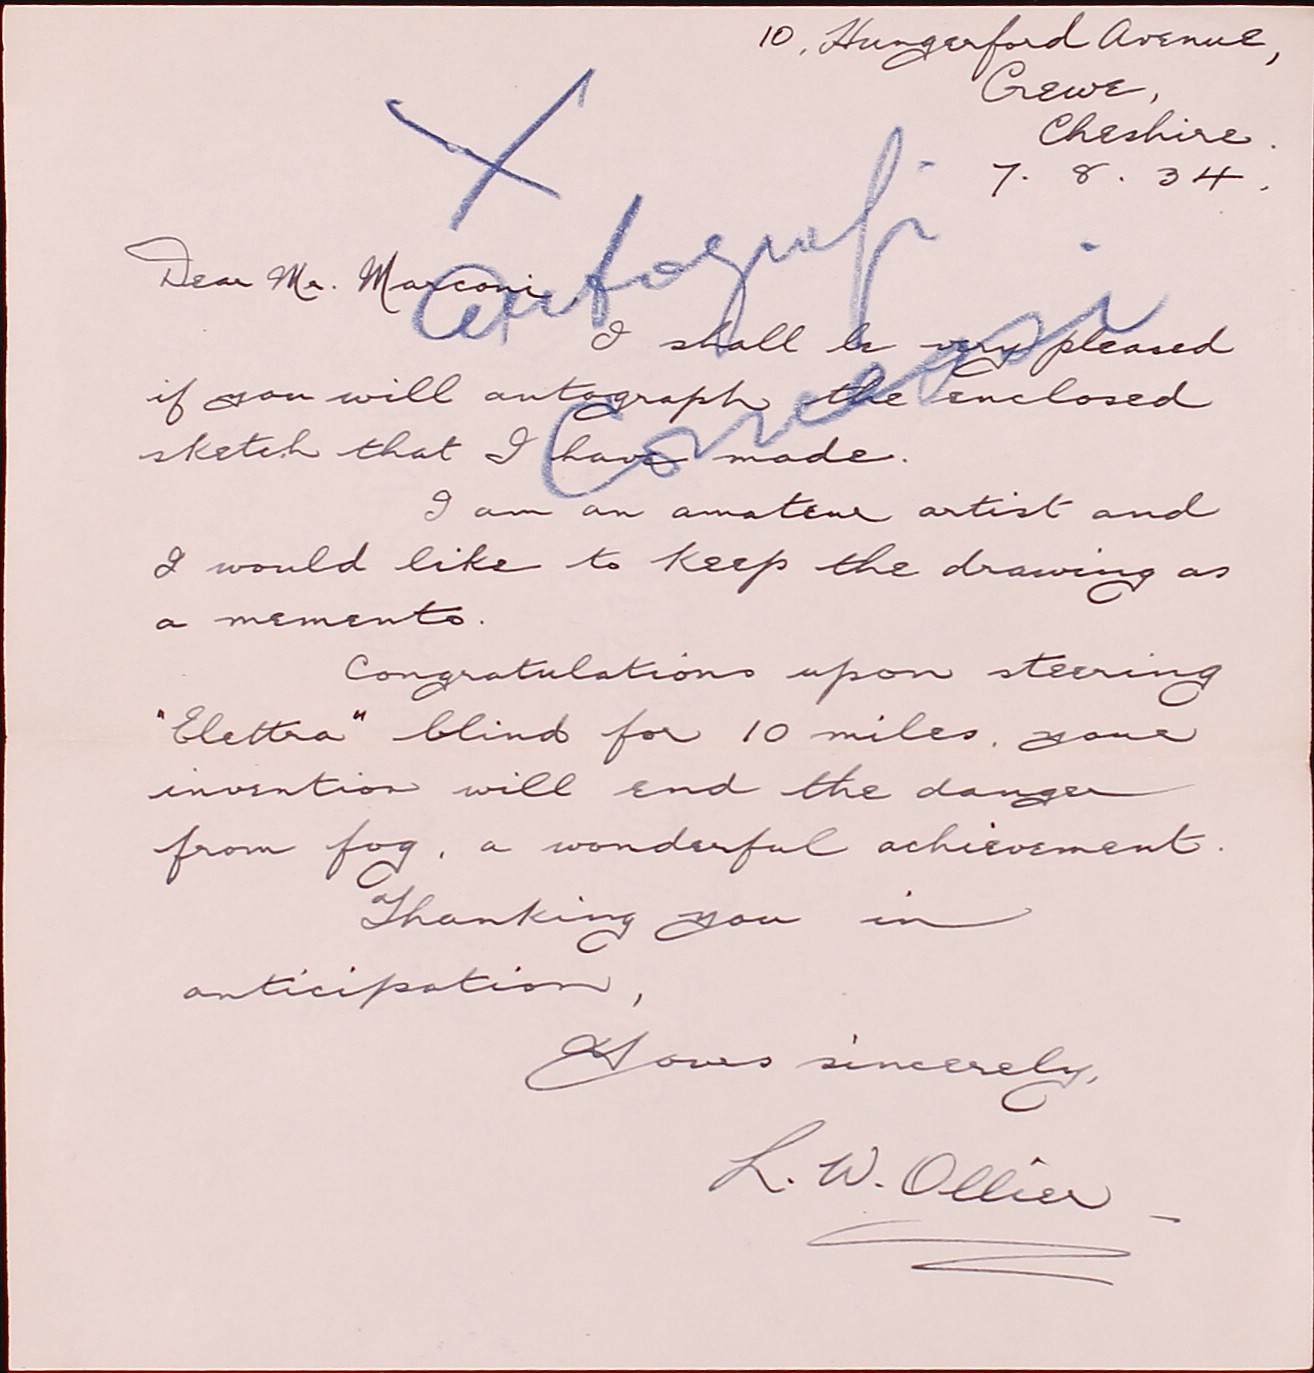 10, Hungerford Avenue,
Crewe,
Cheshire.
7. 8. 34.
X
Autografi
Concessi
Dear Mr. Marconi
I shall be very pleased
if you will autograph the enclosed
sketch that I have made.
I am an amateur artist and
I would like to keep the drawing as
a memento.
Congratulations upon steering
"Elettra" blind for 10 miles. your
invention will end the danger
from fog, a wonderful achievement.
Thanking you in
anticipation,
Yours sincerely,
L. W. Ollier